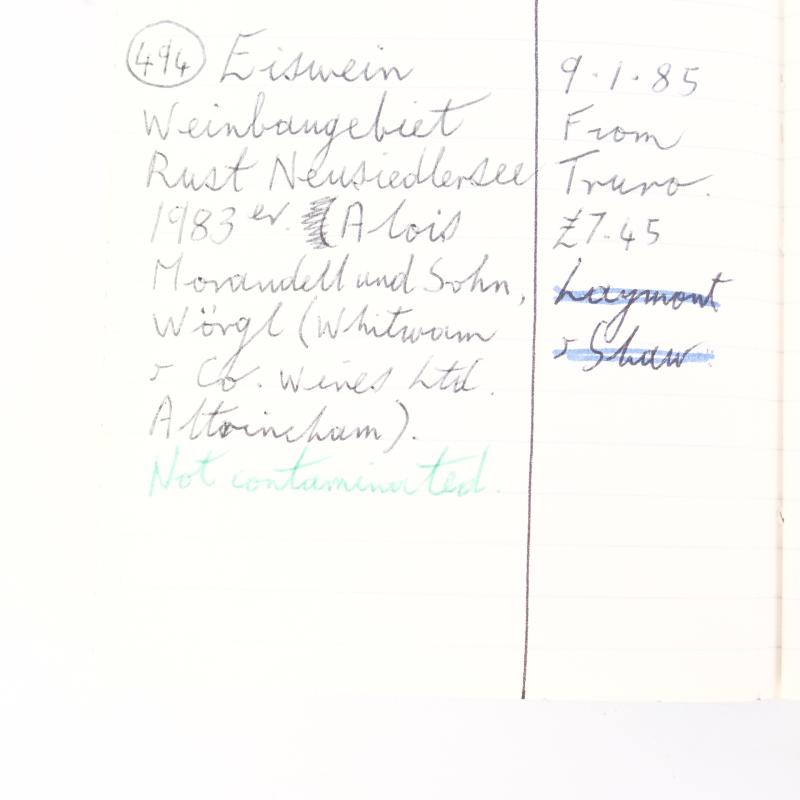 494 Eiswein
Weinbaugebiet
Rust Neusiedlersee
1983er. (Alois
Morandell und Sohn,
Wörgl (Whitwam
& Co. Wines Ltd.
Altrincham).
Not contaminated.
9.1.85
From
Truro.
£7.45
Laymont
& Shaw